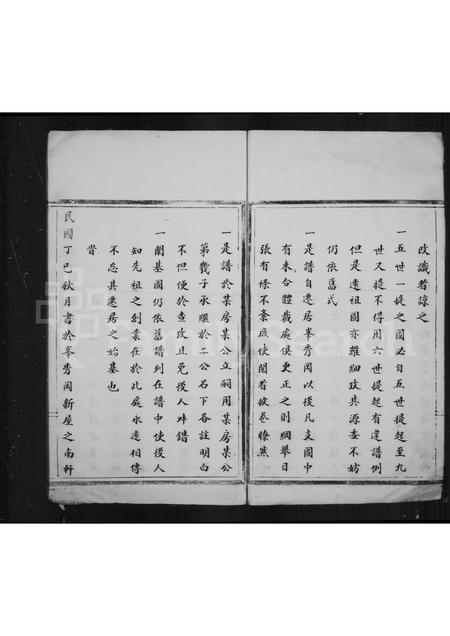 改識者諒之
一五世一提之圖必自五世提起至九
世又提不得用六世提起有違譜例
但是遠祖圖亦難細攷其源委不妨
仍依舊式
一是譜自遷居峯秀岡以後凡支圖中
有未合體裁處俱更正之則綱舉目
張有條不紊庶使閱者披卷瞭然
一是譜於某房某公立祠用某房某公
第幾子承繼於二公名下各註明白
不但便於查攷且免後人舛錯
一開基圖仍依舊譜列在譜中使後人
知先祖之創業在於此處永遠相傳
不忘其遷居之始基也
時
民國丁巳秋月書於峯秀岡新屋之南軒
FamilySearch